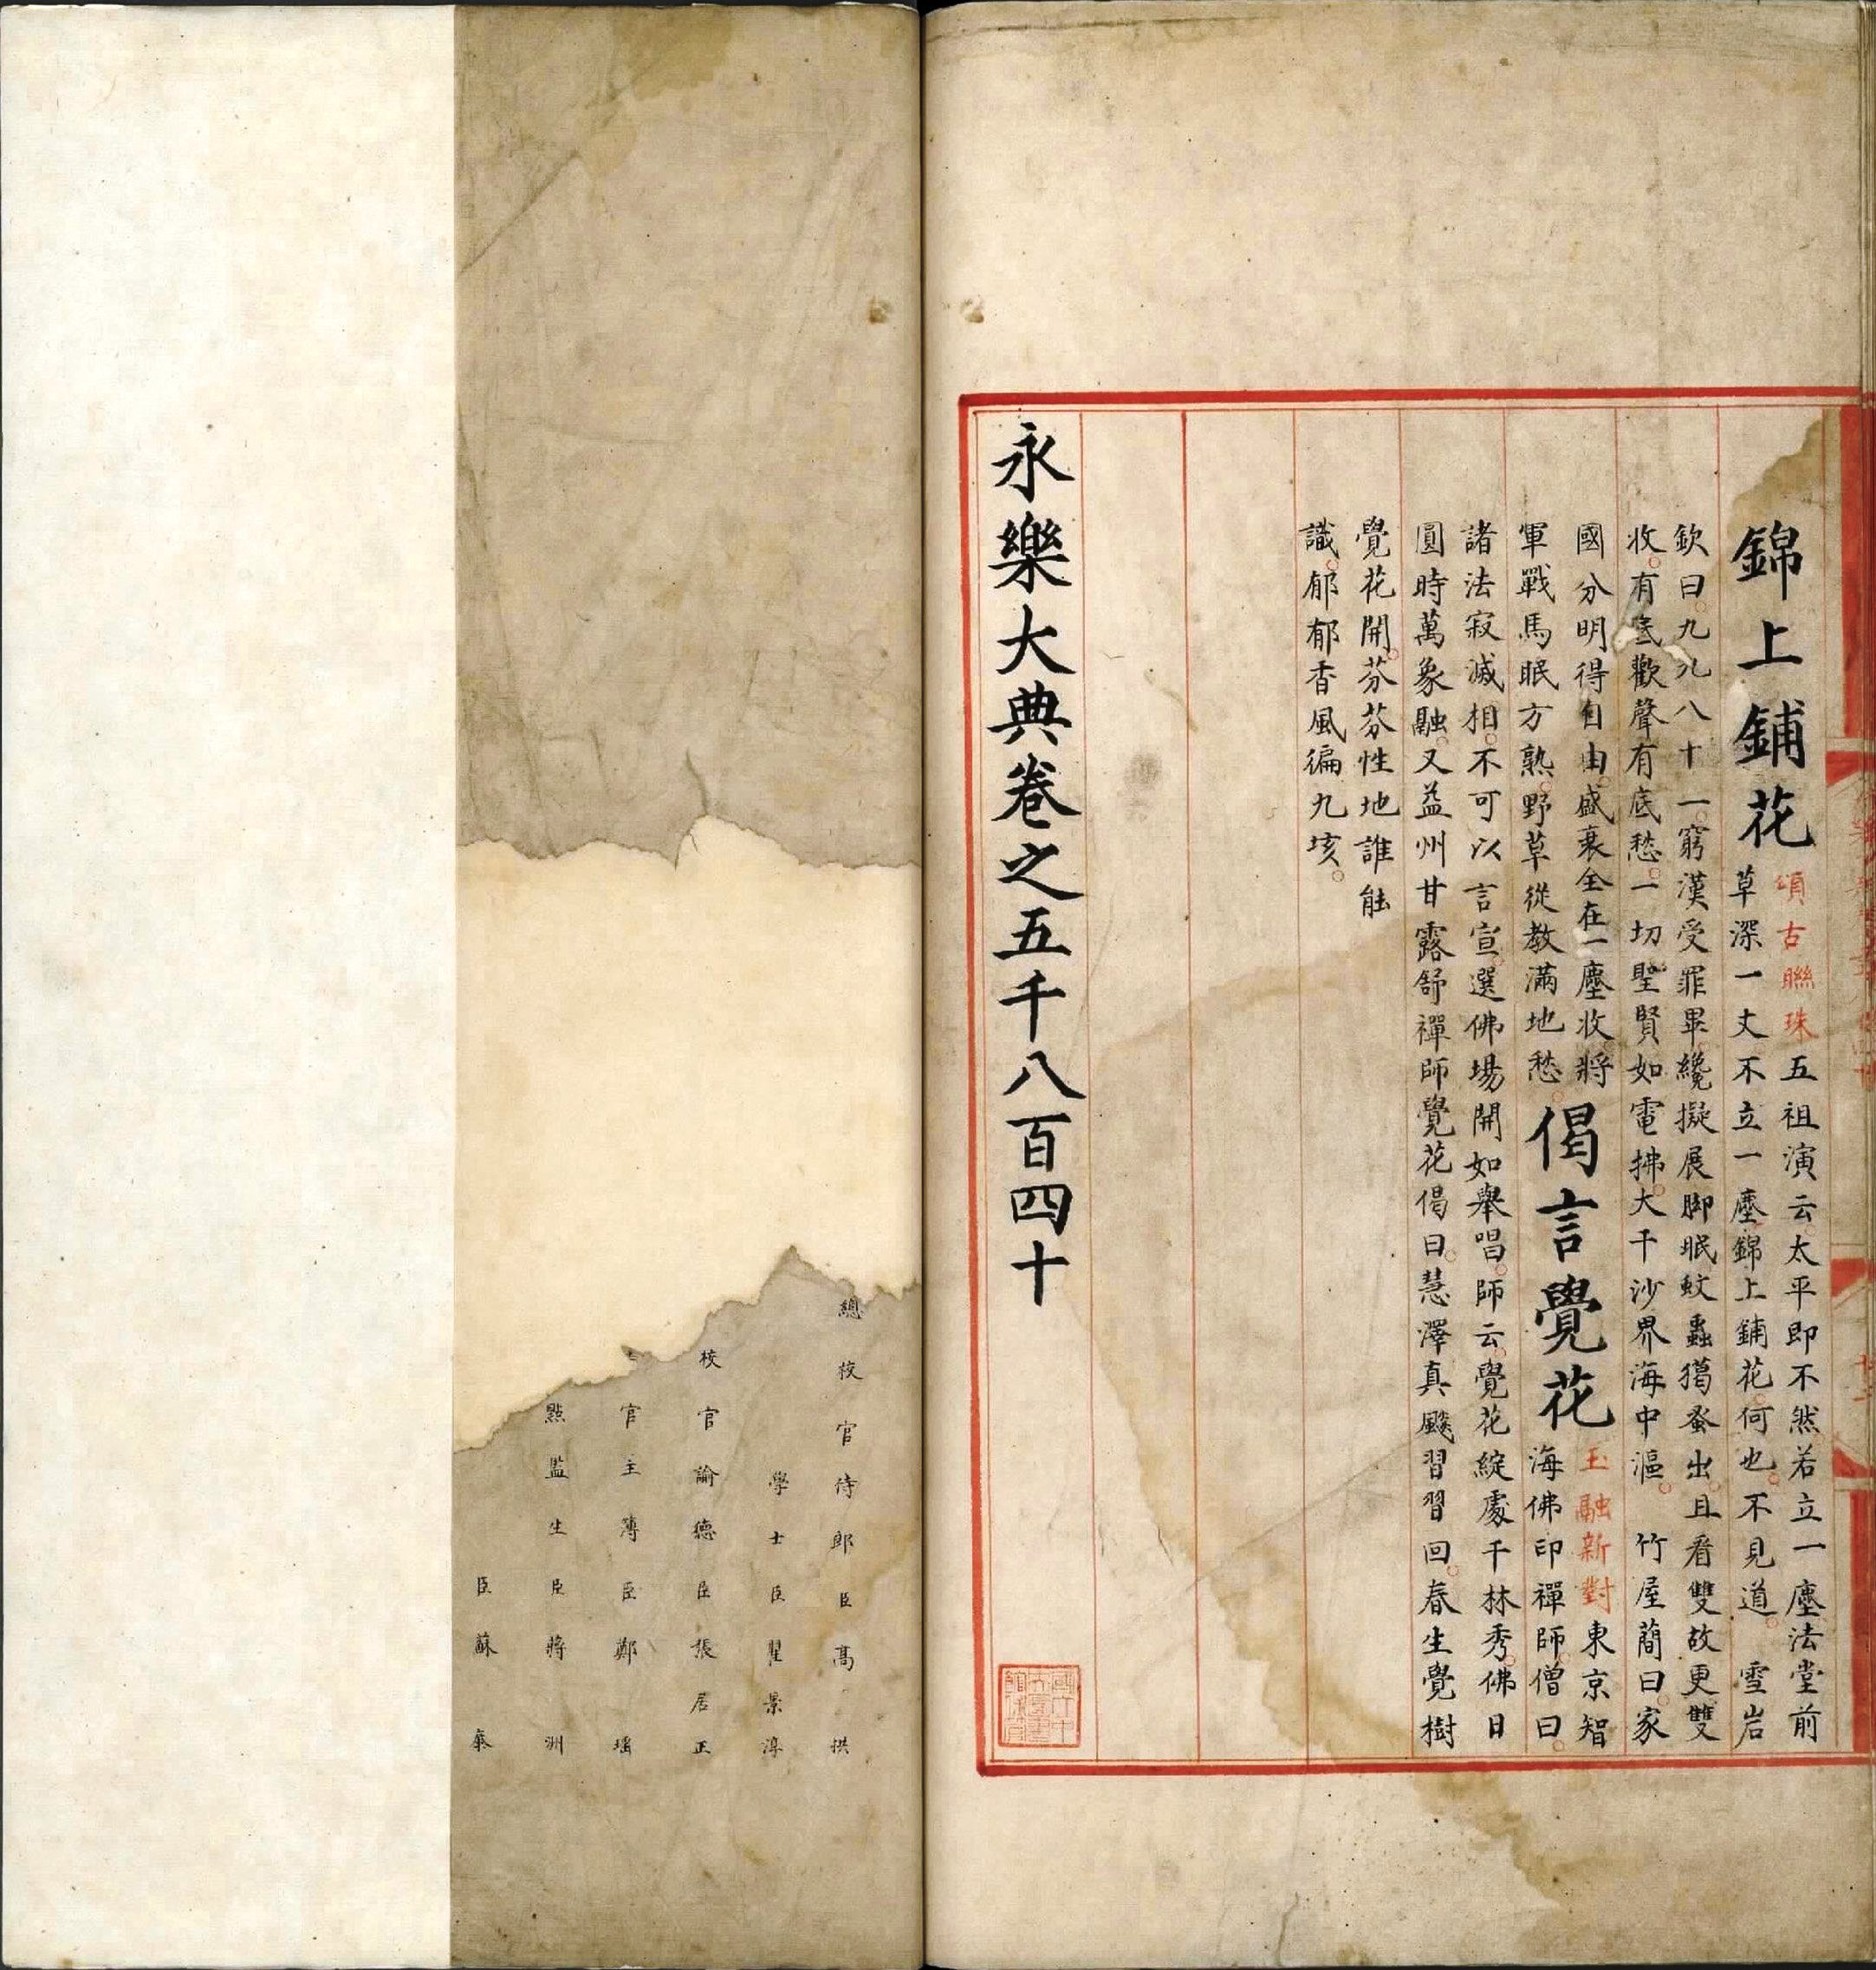 錦上鋪花
頌古聯珠五祖演云太平即不然若立一塵法堂前
草深一丈不立一塵錦上鋪花何也不見道　雪岩
欽曰九九八十一窮漢受罪畢纔擬展脚眠蚊蟲獦蚤出且看雙故更雙
收有底歡聲有底愁一切聖賢如電拂大千沙界海中漚　竹屋蕳曰家
國分明得自由盛衰全在一塵收將
軍戰馬眠方熟野草從教滿地愁
偈言覺花
玉融新對東京智
海佛印禪師僧曰
諸法寂滅相不可以言宣選佛場開如舉唱師云覺花綻處千林秀佛日
圓時萬象融又益州甘露舒禪師覺花偈曰慧澤真颸習習回春生覺樹
覺花開芬芬性地誰能
識郁郁香風徧九垓
永樂大典卷之五千八百四十
總校官侍郎臣高拱
學士臣瞿景淳
校官諭德臣張居正
官主簿臣鄭瑤
點監生臣蔣洲
臣蘇泰